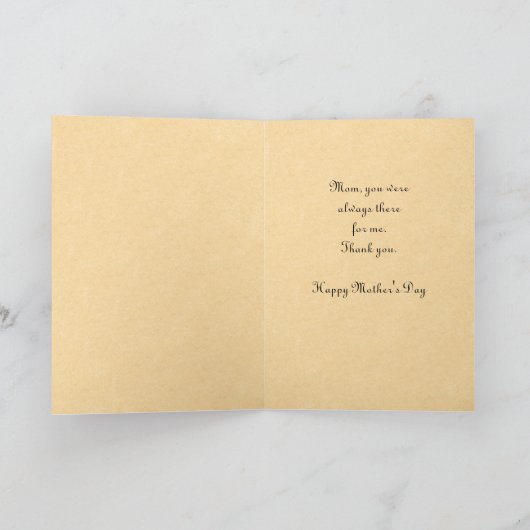 Mom, you were
always there
for me.
Thank you.
Happy Mother's Day